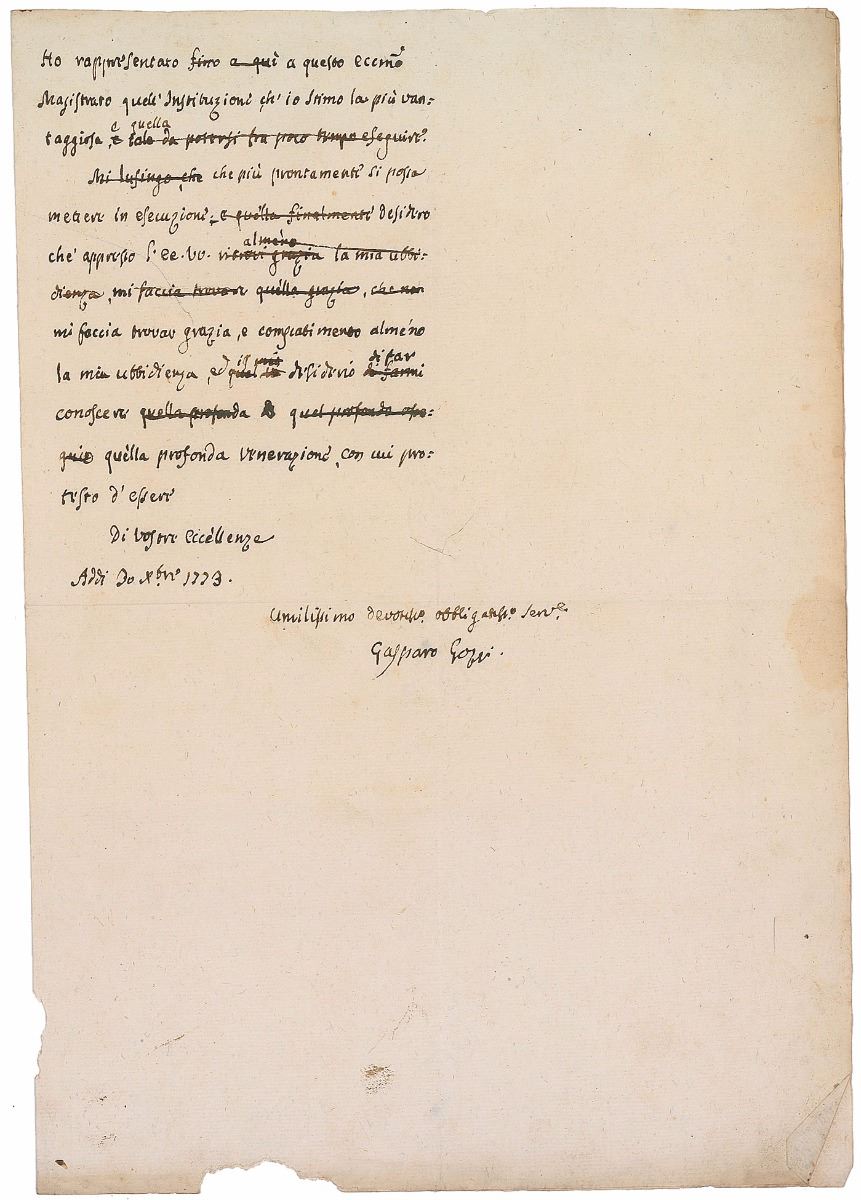 Ho rappresentato fino a quì a questo Eccmõ
Magistrato quell' Instituzione ch' io stimo la più van=
e quella
taggiosa, e tale da potersi fra poco tempo eseguire.
Mi lusingo, che che più prontamente si possa
mettere in esecuzione; e quella finalmente desidero
almeno
che appresso l' EE. VV. grazia la mia ubbi=
dienza, mi faccia trovare quella grazia, che non
mi faccia trovar grazia, e compatimento almeno
il mio di far
la mia ubbidienza, ed quel desiderio di farmi
conoscere quella profonda & quel profondo osse=
quio quella profonda venerazione, con cui pro=
testo d' essere
Di Vostre Eccellenze
Addi 30 Xbre 1773.
Umilissimo devotiss.o obbligatiss.o Serv.e
Gasparo Gozzi.